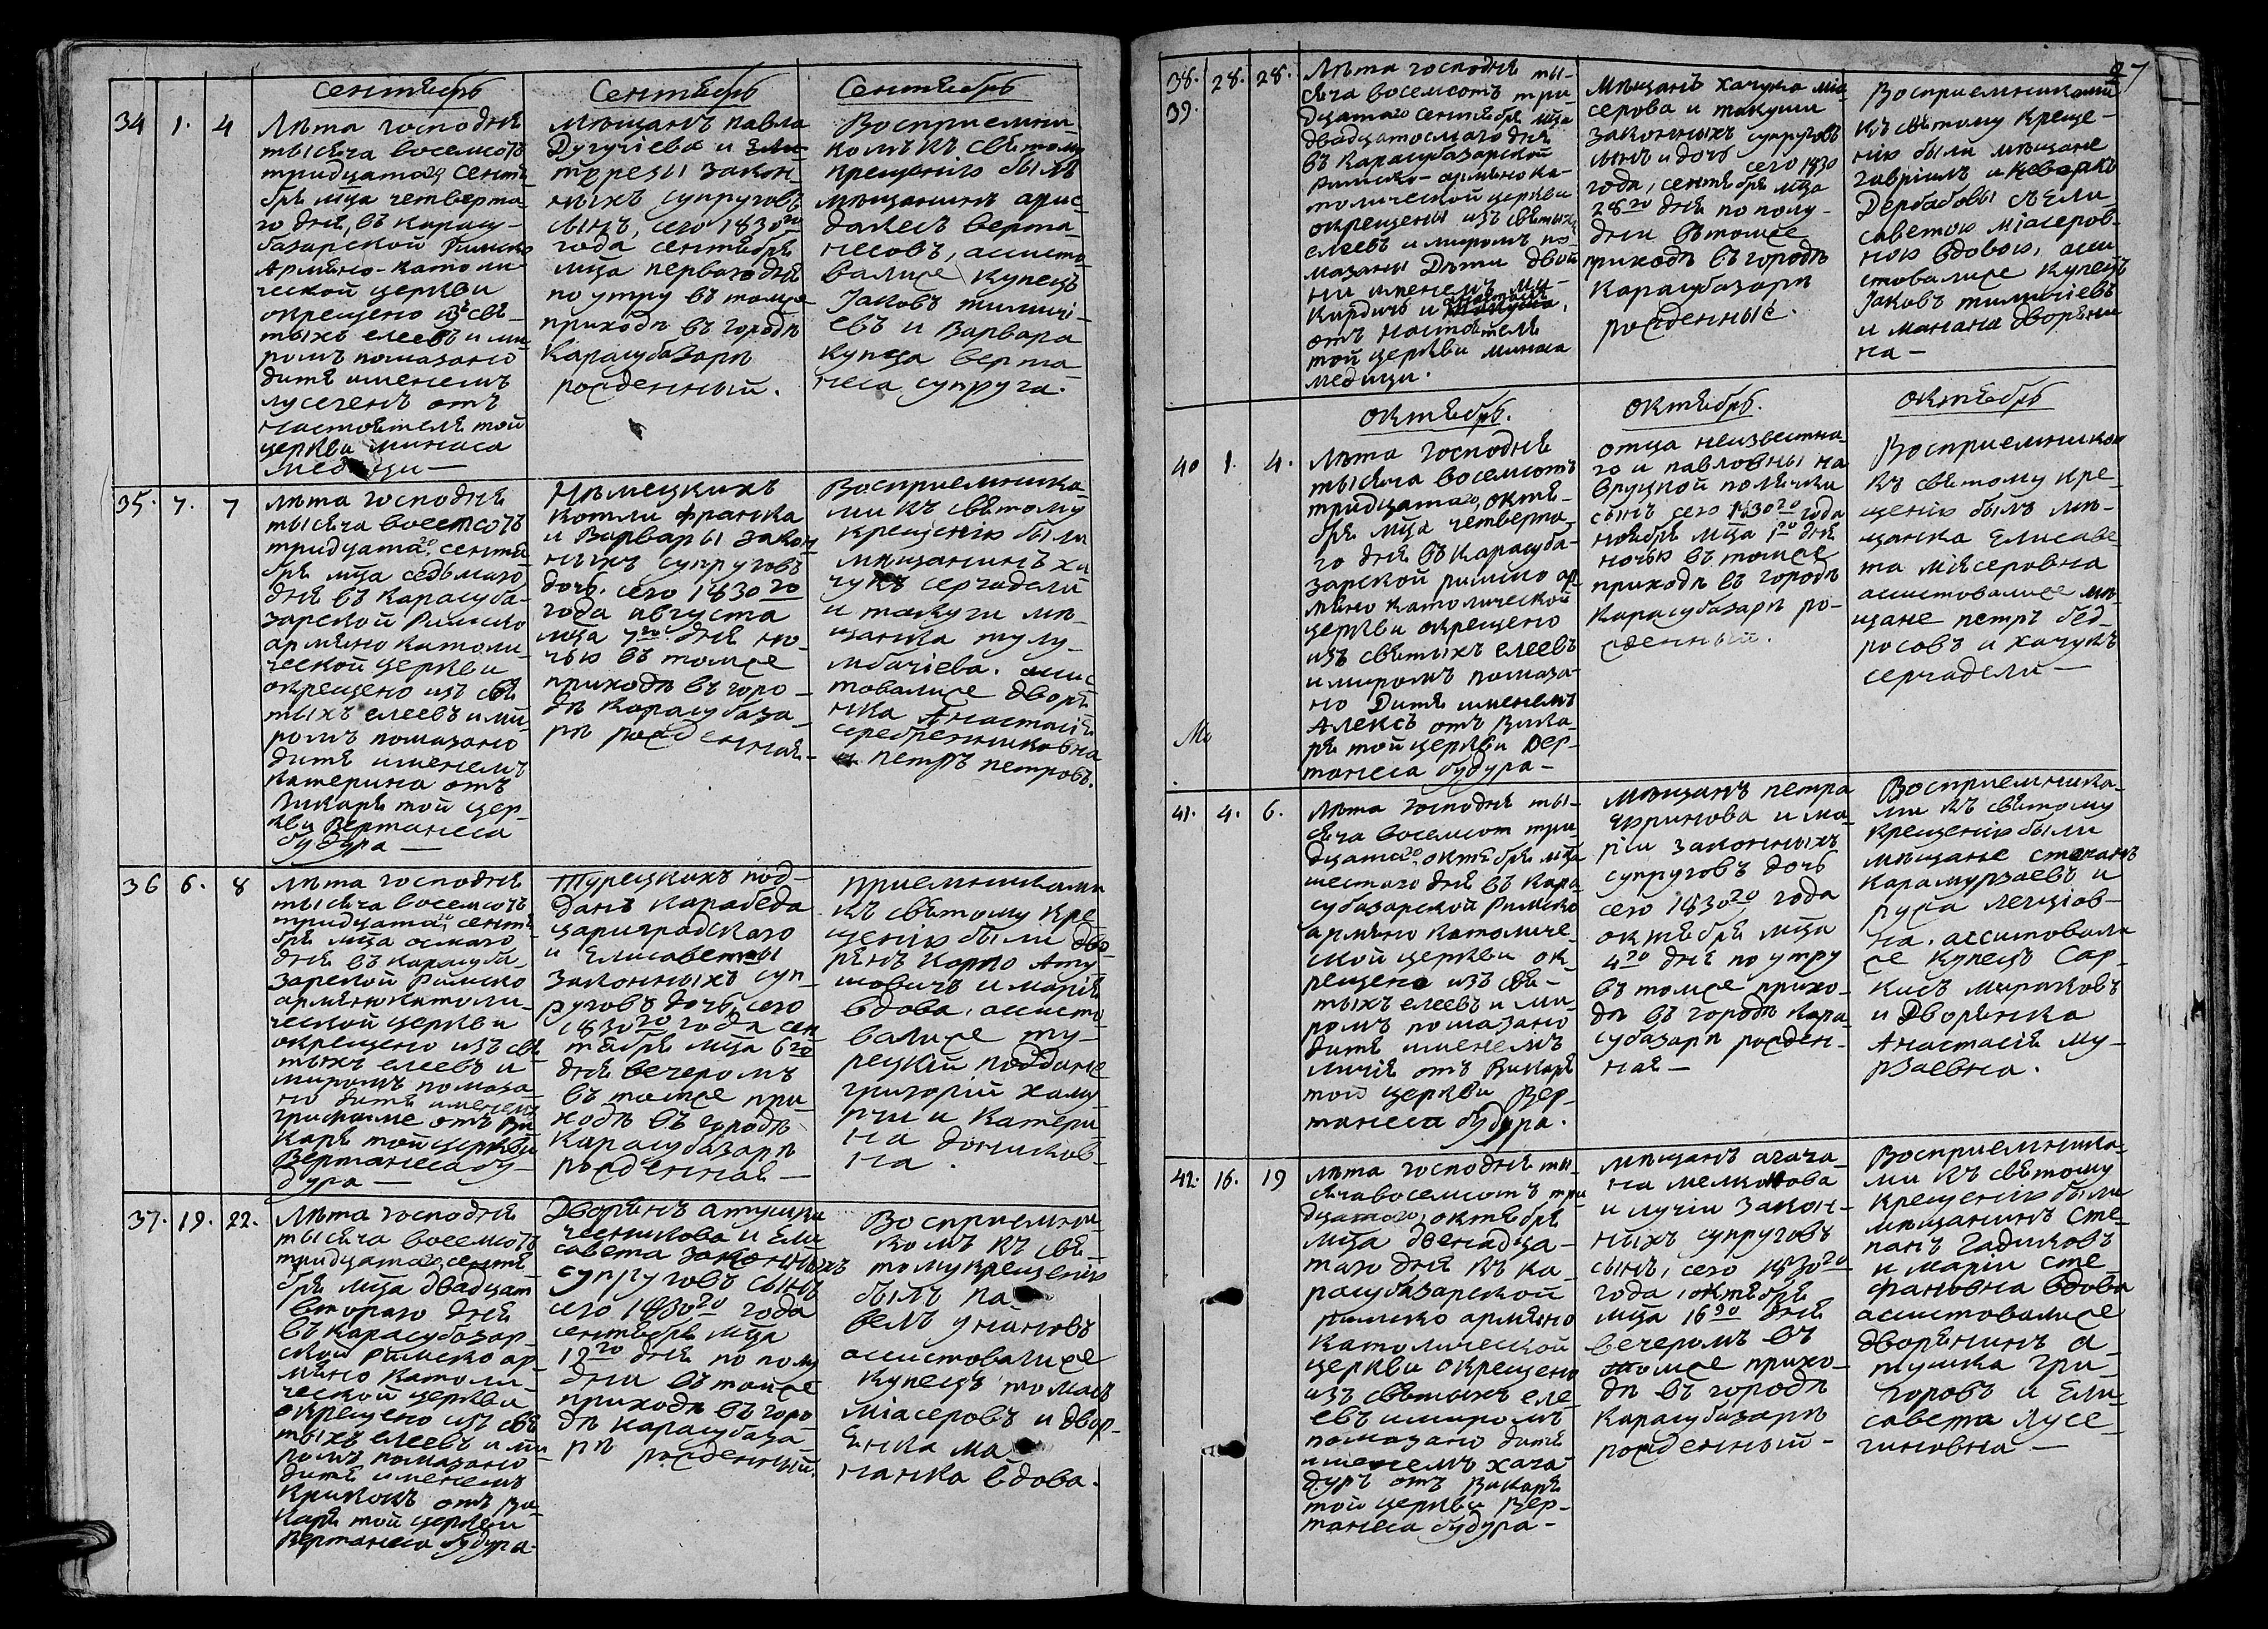 Сентябрь
34 1. 4
Лѣта господня
тысяча восемсотъ
тридцатаго Сентя
бря мца четверта
го дня, въ Карасу-
базарской Римско
Армяно-католи
ческой церкви
окрещено изъ свя-
тыхъ елеевъ и ми
ромъ помазано
дитя именемъ
лусегенъ отъ
настоятеля той
церкви минаса
Сентябрь
Мѣщанъ павла
Дугучіева и
терезы закон
ныхъ супруговъ
сынъ, сего 1830го
года сентября
мца перваго дня
по утру въ томже
приходѣ въ городѣ
Карасубазарѣ
рожденный.
Сентябрь
Восприемни-
комъ къ святому
крещенію былъ
мѣщанинъ арис
дакесъ верта
несовъ, ассисто
валися купецъ
Јаковъ тимичі-
евъ и Варвара
купца верта
неса супруга.
35. 7. 7
лѣта господня
тысяча восемсотъ
тридцатаго, сентя
бря мца седьмаго
дня въ Карасуба-
зарской Римско
армяно католи-
ческой церкви
окрещено изъ свя
тыхъ елеевъ и ми
ромъ помазано
дитя именемъ
катерина отъ
Викаря той цер-
кви Вертанеса
будура —
Нѣмецкихъ
котли франка
и Варвары закон
ныхъ супруговъ
дочь. сего 1830го
года августа
мца 7го дня но-
чью въ томже
приходѣ въ горо-
дѣ Карасубаза-
рѣ рожденная-
Восприемника-
ми къ святому
крещенію были
мѣщанинъ ха
чукъ серчадели
и такуги мѣ-
щанка тулу-
мбачіева. асис
товалися дворя
нка Анастасія
серебрениковна
и петръ петровъ.
36 6. 8
лѣта господня
тысяча восемсотъ
тридцатаго, сентя
бря мца осмаго
дня въ Карасуба-
зарской Римско
армяно католи-
ческой церкви
окрещено изъ свя
тыхъ елеевъ и
миромъ помаза-
но дитя именемъ
отъ Ви
каря той церкви
Вертанеса бу-
дура —
Турецкихъ под-
данъ Карабеда
цариградскаго
и Елисаветы
законныхъ суп-
руговъ дочь, сего
1830го года сен
тября мца 6го
дня вечеромъ
въ томже при-
ходѣ въ городѣ
Карасубазарѣ
рожденная —
приемниками
къ святому кре
щенію были дво
рянъ Карпо Ату
шовичъ и марія
вдова, ассисто
валися ту-
рецкій подданые
григорій халу
пчи и Катери
на доников-
на.
37. 19. 22.
Лѣта господня
тысяча восемсотъ
тридцатаго, сентя
бря мца двадцат
втораго дня
въ карасубазар-
ской Римско ар-
мяно католи-
ческой церкви
окрещено изъ свя
тыхъ елеевъ и ми
ромъ помазано
дитя именемъ
Крикокъ отъ ви-
каря той церкви
Вертанеса будура-
Дворянъ атушки
чесникова и Ели
савета законныхъ
супруговъ сынъ
сего 1830го года
сентября мца
19го дня по полу
дни въ томже
приходѣ въ горо
дѣ карасубаза-
рѣ рожденный.
Восприемни-
комъ къ свя-
тому крещенію
былъ па
велъ унановъ
ассистовалися
купецъ томасъ
міасеровъ и двор-
янка ма
нанка вдова.
27
38. 28. 28.
39.
Лѣта господня ты-
сяча восемсотъ три-
дцатаго сентября мца
двадцатосмаго дня
въ Карасубазарской
римско-армяно ка-
толической церкви
окрещены изъ святыхъ
елеевъ и миромъ по-
мазаны Дѣти двой
ни именемъ ми-
кирдичъ и
отъ настоятеля
той церкви минаса
медици.
Мѣщанъ хачука міа
серова и такуши
законныхъ супруговъ
сынъ и дочь сего 1830
года, сентября мца
28го дня по полу-
дни въ томже
приходѣ въ городѣ
Карасубазарѣ
рожденные.
Восприемниками
къ святому креще-
нію были мѣщане
Гавріилъ и Кеворкъ
Дербабовы съ Ели
саветою Міасеров-
ною вдовою, асси
стовалися купецъ
Јаковъ тимичіевъ
и манана дворяни
на —
октябрь.
40 1. 4.
Лѣта господня
тысяча восемсотъ
тридцатаго, октя-
бря мца четверта-
го дня въ Карасуба-
зарской римско ар
мяно католической
церкви окрещено
изъ святыхъ елеевъ
и миромъ помаза-
но Дитя именемъ
Алексъ отъ Вика-
ря той церкви Вер-
танеса будура —
октябрь.
отца неизвестна-
го и павловны на
вруцкой полячки
сынъ сего 1830го года
ноября мца 1го дня
ночью въ томже
приходѣ въ городѣ
Карасубазарѣ ро-
жденный.
октябрь
Восприемникои
къ святому кре-
щенію былъ мѣ-
щанка Елисаве-
та міясеровна
ассистовалися мѣ
щане петръ бед-
росовъ и хачукъ
серчадели —
Мо
41. 4. 6.
Лѣта господня ты-
сяча восемсот три-
дцатаго, октября мца
шестаго дня въ Кара
субазарской Римско
армяно католиче-
ской церкви ок-
рещено изъ свя-
тыхъ елеевъ и ми-
ромъ помазано
дитя именемъ
лучія отъ Викаря
той церкви Вер-
танеса будура.
Мѣщанъ петра
и ма
ріи законныхъ
супруговъ дочь
сего 1830го года
октября мца
4го дня по утру
въ томже прихо-
дѣ въ городѣ Кара
субазарѣ рожден-
ная —
Восприемника-
ми къ святому
крещенію были
мѣщане степанъ
Карамурзаевъ и
руса легціов-
на. асситовали
ся купецъ Сар-
кисъ мираковъ
и Дворянка
Анастасія му-
рзаевна.
42. 16. 19
лѣта господня ты-
сяча восемсотъ три
дцатаго, октября
мца двенадца-
таго дня въ ка-
расубазарской
римско армяно
католической
церкви окрещено
изъ святыхъ еле
евъ и миромъ
помазано дитя
именемъ хача-
дуръ отъ Викаря
той церкви Вер-
танеса будура-
мѣщанъ агача-
на мелконова
и лучіи закон-
ныхъ супруговъ
сынъ, сего 1830го
года, октября
мца 16го дня
вечеромъ въ
томже прихо-
дѣ въ городѣ
Карасубазарѣ
рожденный-
Восприемника-
ми къ святому
крещенію были
мѣщанинъ сте-
панъ Гадиковъ
и маріи сте-
фановна вдова
ассистовалися
дворянинъ а-
тушка гри-
горовъ и Ели-
савета лусе-
гиновна —